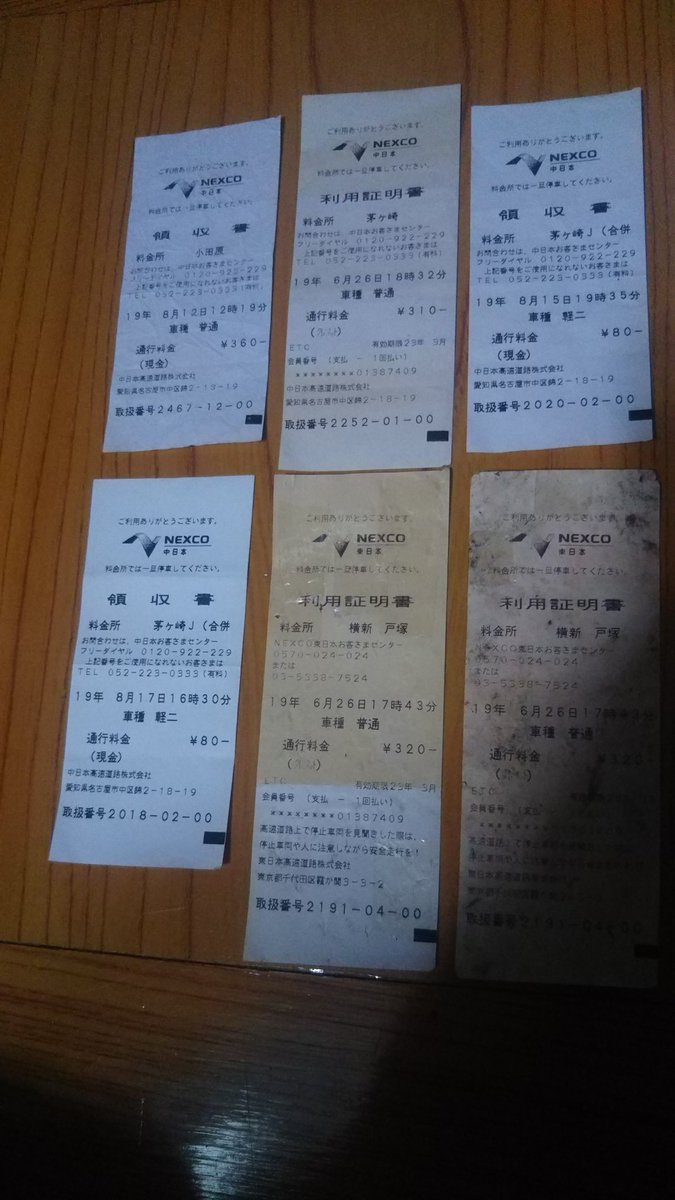 ご利用ありがとうございます。
NEXCO
中日本
料金所では一旦停車してください。
領収書
料金所 小田原
お問合わせは、中日本お客さまセンター
フリーダイヤル 0120-922-229
上記番号をご使用になれないお客さまは
TEL 052-223-0333(有料)
19年 8月12日12時19分
車種 普通
通行料金 ¥360-
(現金)
中日本高速道路株式会社
愛知県名古屋市中区錦2-18-19
取扱番号2467-12-00
ご利用ありがとうございます。
NEXCO
中日本
料金所では一旦停車してください。
利用証明書
料金所 茅ヶ崎
お問合わせは、中日本お客さまセンター
フリーダイヤル 0120-922-229
上記番号をご使用になれないお客さまは
TEL 052-223-0333(有料)
19年 6月26日18時32分
車種 普通
通行料金 ¥310-
ETC 有効期限23年 3月
会員番号 (支払 - 1回払い)
********01387409
中日本高速道路株式会社
愛知県名古屋市中区錦2-18-19
取扱番号2252-01-00
ご利用ありがとうございます。
NEXCO
中日本
料金所では一旦停車してください。
領収書
料金所 茅ヶ崎J(合併
お問合わせは、中日本お客さまセンター
フリーダイヤル 0120-922-229
上記番号をご使用になれないお客さまは
TEL 052-223-0333(有料)
19年 8月15日19時35分
車種 軽二
通行料金 ¥80-
(現金)
中日本高速道路株式会社
愛知県名古屋市中区錦2-18-19
取扱番号2020-02-00
ご利用ありがとうございます。
NEXCO
中日本
料金所では一旦停車してください。
領収書
料金所 茅ヶ崎J(合併
お問合わせは、中日本お客さまセンター
フリーダイヤル 0120-922-229
上記番号をご使用になれないお客さまは
TEL 052-223-0333(有料)
19年 8月17日16時30分
車種 軽二
通行料金 ¥80-
(現金)
中日本高速道路株式会社
愛知県名古屋市中区錦2-18-19
取扱番号2018-02-00
ご利用ありがとうございます。
NEXCO
東日本
料金所では一旦停車してください。
利用証明書
料金所 横新 戸塚
NEXCO東日本お客さまセンター
0570-024-024
または
03-5338-7524
19年 6月26日17時43分
車種 普通
通行料金 ¥320-
ETC 有効期限23年 3月
会員番号 (支払 - 1回払い)
********01387409
高速道路上で停止車両を見聞きした際は、
停止車両や人に注意しながら安全走行を!
東日本高速道路株式会社
東京都千代田区霞が関3-3-2
取扱番号2191-04-00
ご利用ありがとうございます。
NEXCO
東日本
料金所では一旦停車してください。
利用証明書
料金所 横新 戸塚
NEXCO東日本お客さまセンター
0570-024-024
または
03-5338-7524
19年 6月26日17時43分
車種 普通
通行料金 ¥320-
ETC
会員番号 (支払
********01387409
東日本高速道路株式会社
東京都千代田区霞が関3-3-2
取扱番号2191-04-00